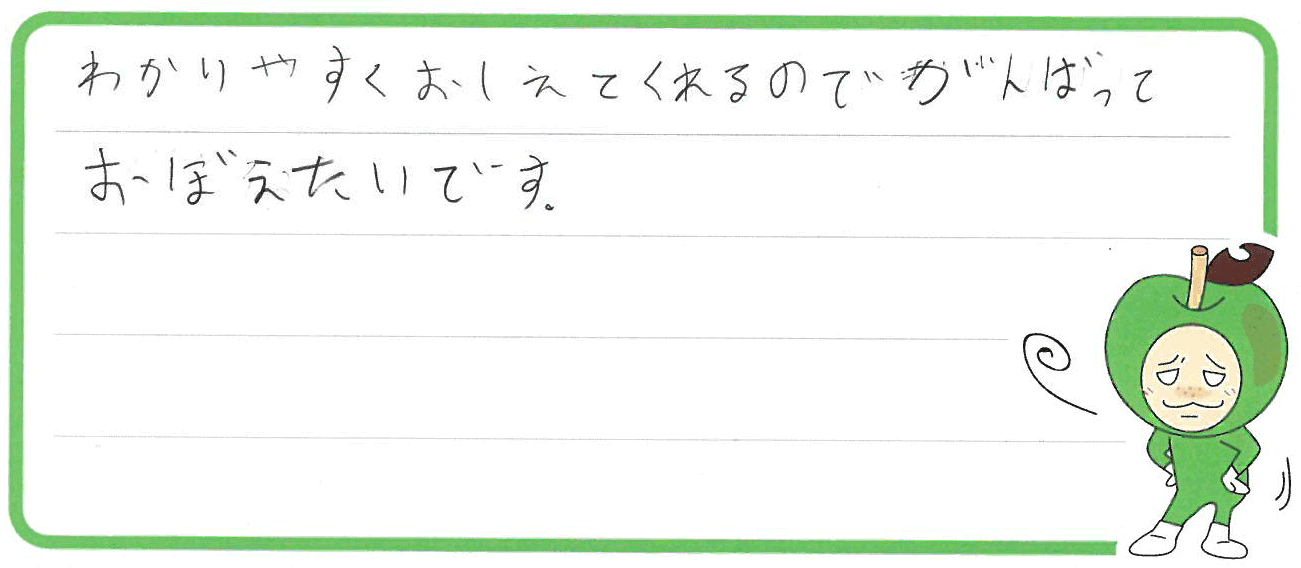 わかりやすくおしえてくれるのでがんばって
おぼえたいです。